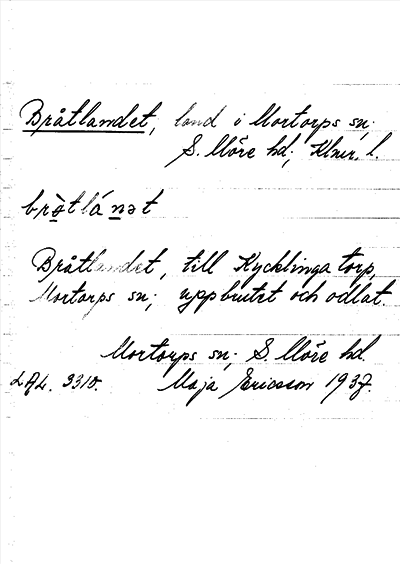 Bråtlandet, land i Mortorps sn;
S. Möre hd; Klmr. l.
brò̲tlá n̲ət
Bråtlandet, till Kycklinga torp,
Mortorps sn; uppbrutet och odlat.
Mortorps sn; S. Möre hd.
LAL. 3310. Maja Ericsson 1937.